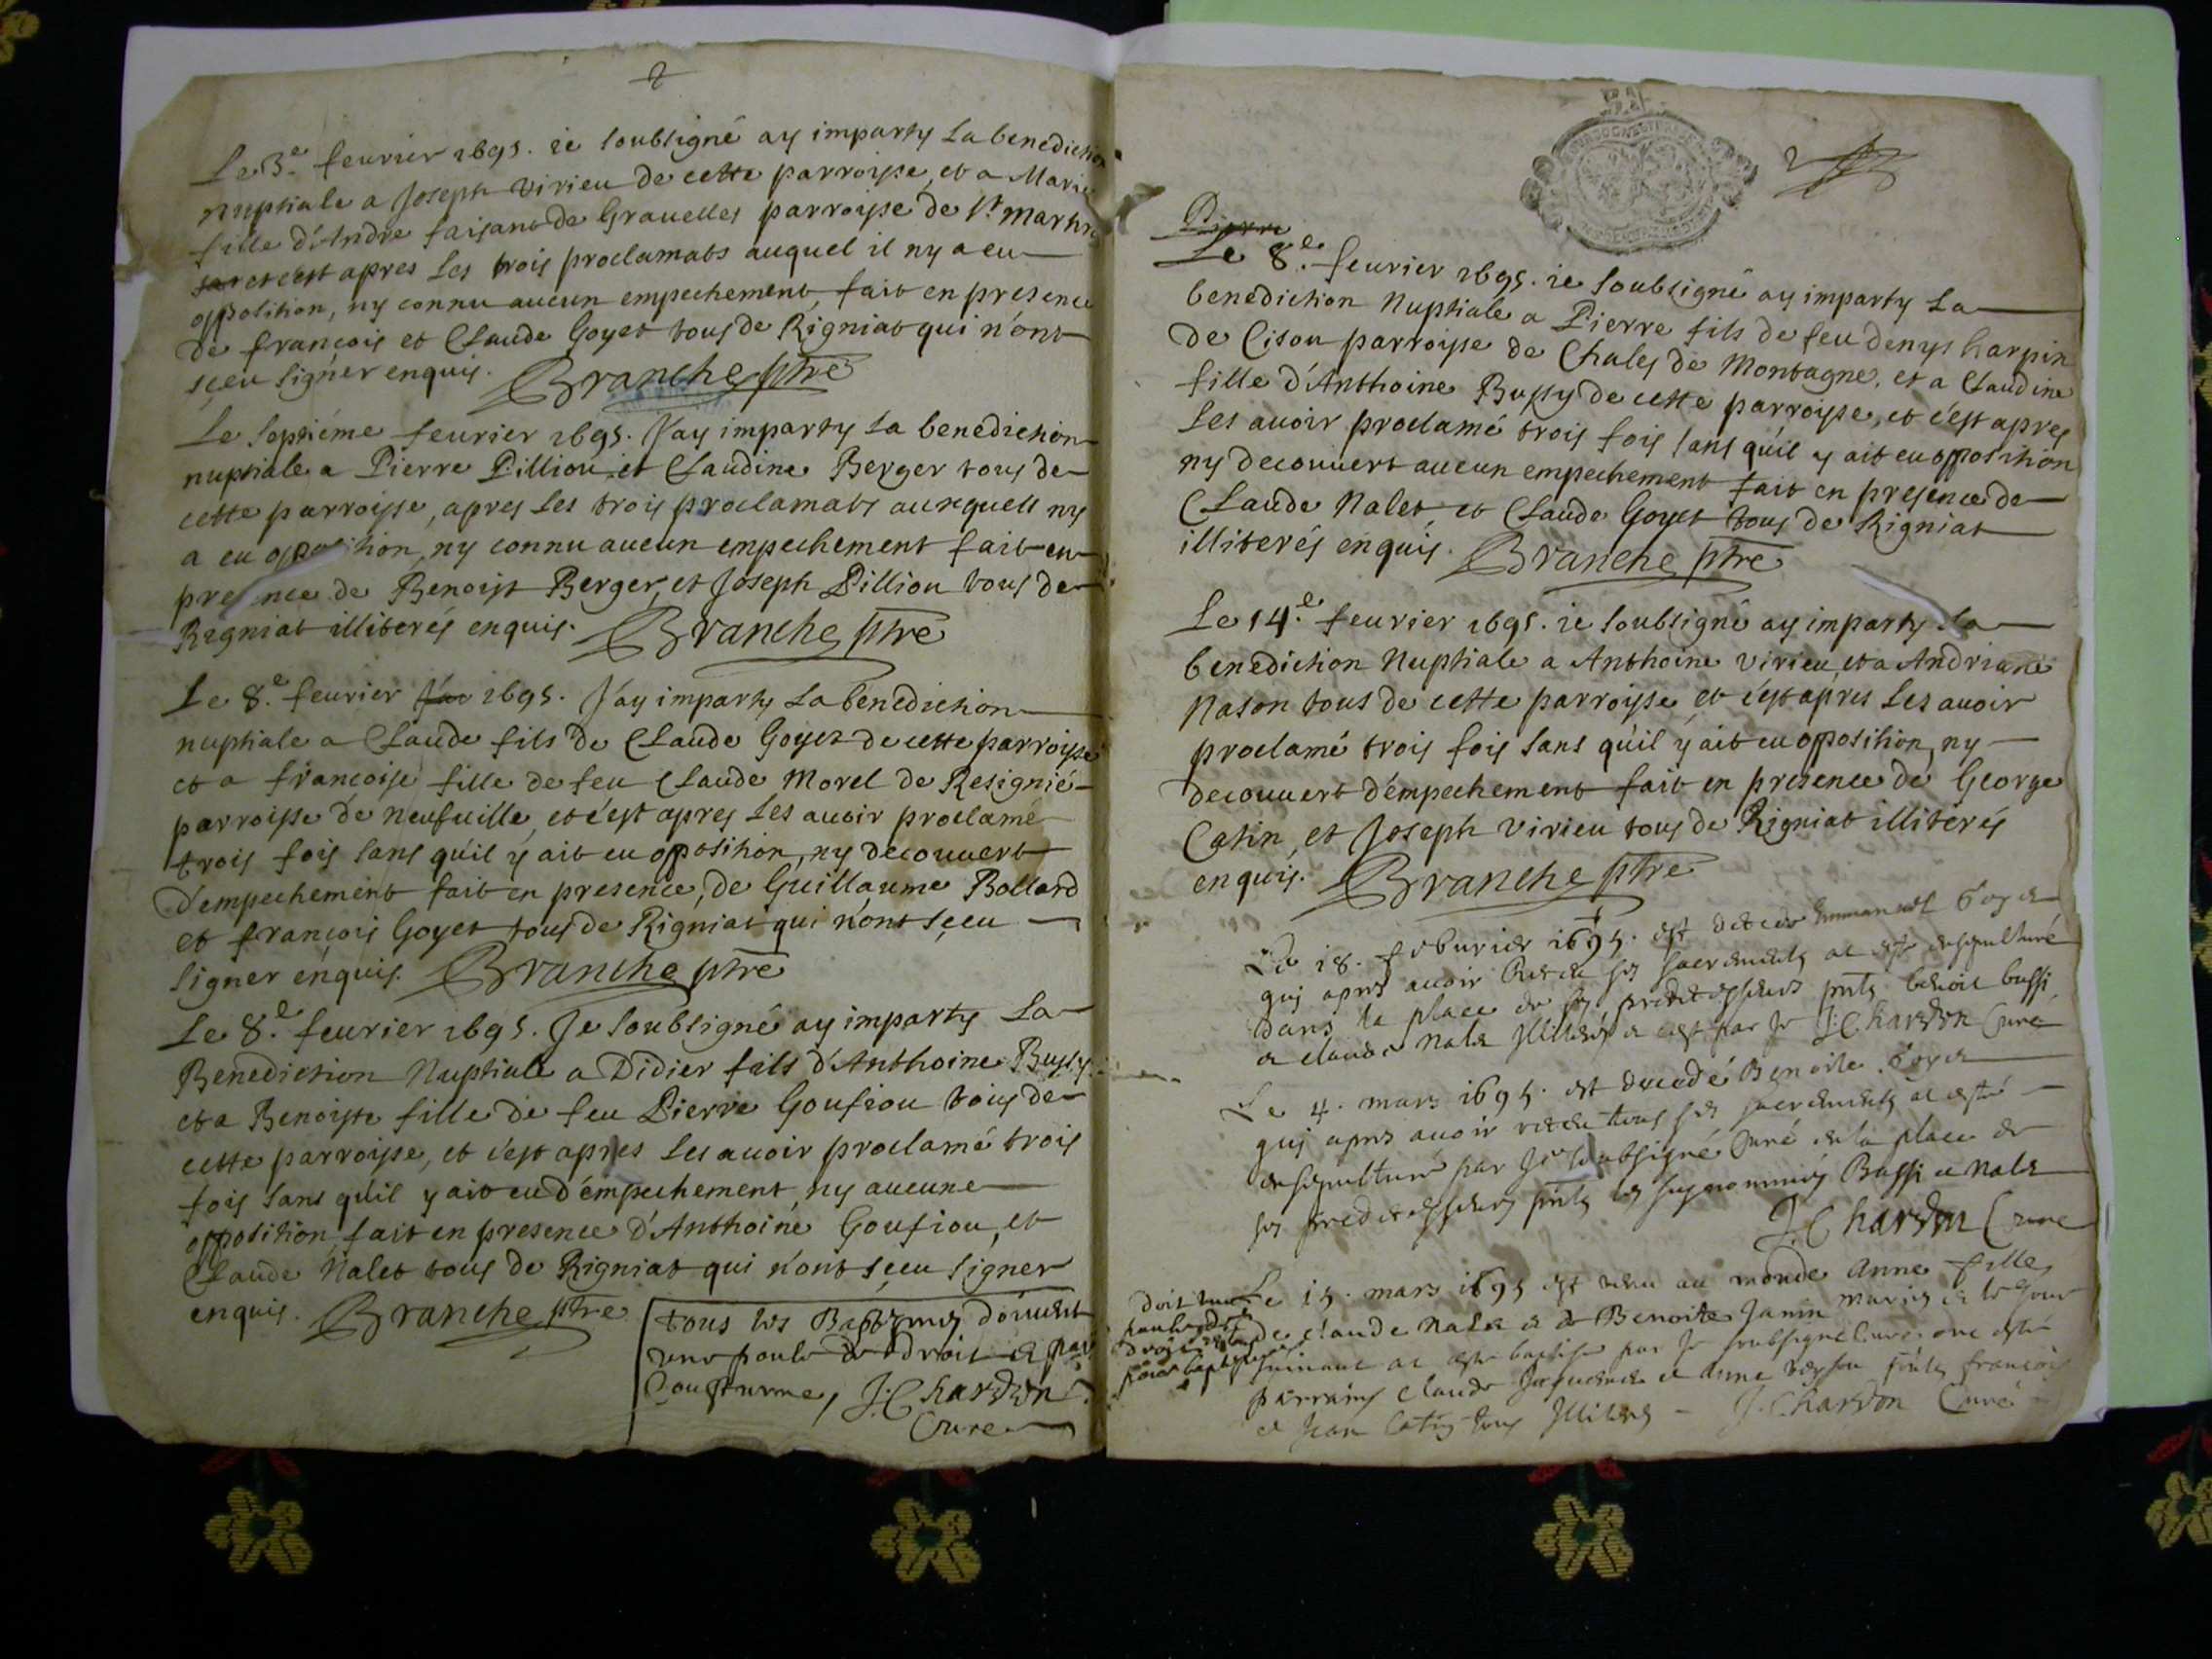 2
Le 3.e feurier 1695. ie soubsigné ay imparty la benediction
nuptiale a Joseph virieu de cette parroisse, et a Marie
fille d'Andre faisant de Grauelles parroisse de st martin
et c'est apres les trois proclamats auquel il ny a eu
opposition, ny connu aucun empechement, fait en presence
de françois et Claude Goyet tous de Rigniat qui n'ont
sçeu signer enquis. Branche ptre
Le septiéme feurier 1695. J'ay imparty la benediction
nuptiale a Pierre Pilliou et Claudine Berger tous de
cette parroisse, apres les trois proclamats auxquels ny
a eu opposition, ny connu aucun empechement fait en
presence de Benoist Berger, et Joseph Pilliou tous de
Rigniat illiterés enquis. Branche ptre
Le 8.e feurier 1695. J'ay imparty la benediction
nuptiale a Claude fils de Claude Goyet de cette parroisse
et a francoise fille de feu Claude Morel de Resignié
parroisse de neufuille, et c'est apres les auoir proclamé
trois fois sans qu'il y ait eu opposition, ny decouuert
d'empechement fait en presence, de Guillaume Bollard
et françois Goyet tous de Rigniat qui n'ont sçeu
signer enquis. Branche ptre
Le 8.e feurier 1695. Je soubsigné ay imparty la
Benediction Nuptiale a Didier fils d'Anthoine Bussy
et a Benoiste fille de feu Pierre Goufiou tous de
cette parroisse, et c'est apres les auoir proclamé trois
fois sans qu'il y ait eu d'empechement ny aucune
opposition, fait en presence d'Anthoine Goufiou, et
Claude Nalet tous de Rigniat qui n'ont sçeu signer
enquis. Branche ptre
tous les Baptemes doiuent
une poule de droit et par
Coustume, J. Chardon
Curé
2
Pierre
Le 8.e feurier 1695. ie soubsigné ay imparty la
benediction Nuptiale a Pierre fils de feu denys harpin
de Cisou parroisse de Chales de Montagne, et a Claudine
fille d'Anthoine Bussy de cette parroisse, et c'est apres
les auoir proclamé trois fois sans qu'il y ait eu opposition
ny decouuert aucun empechement fait en presence de
Claude Nalet, et Claude Goyet tous de Rigniat
illiterés enquis. Branche ptre
Le 14.e feurier 1695. ie soubsigné ay imparty la
benediction Nuptiale a Anthoine virieu, et a Andriane
Nason tous de cette parroisse et c'est apres les auoir
proclamé trois fois sans qu'il y ait eu opposition, ny
decouuert d'empechement fait en presence de George
Catin, et Joseph virieu tous de Rigniat illiterés
enquis. Branche ptre
Le 18. feburier 1695. est decedé Emmanuel Goyet
qui apres auoir receu ses sacrements at esté ensepulturé
dans la place de ses predecesseurs pnts benoit bussi
et claude nalet Illiterés et cest par Je J. Chardon Curé
Le 4. mars 1695. est decedé Benoite Goyet
qui apres auoir receu tous ses sacrements at esté
ensepulturé par Je soubsigné Curé en la place de
ses predecesseurs pnts les susnommés Bussi et Nalet
J. Chardon Curé
doit une
poule de
droit
pour baptesme
Le 15. mars 1695 est venu au monde Anne fille
de claude Nalet et de Benoite Janin mariés et le Jour
suiuant at esté baptisé par Je soubsigné Curé. ont esté
parrains claude et Anne pnts françois
et Jean Catin tous Illiterés - J. Chardon Curé